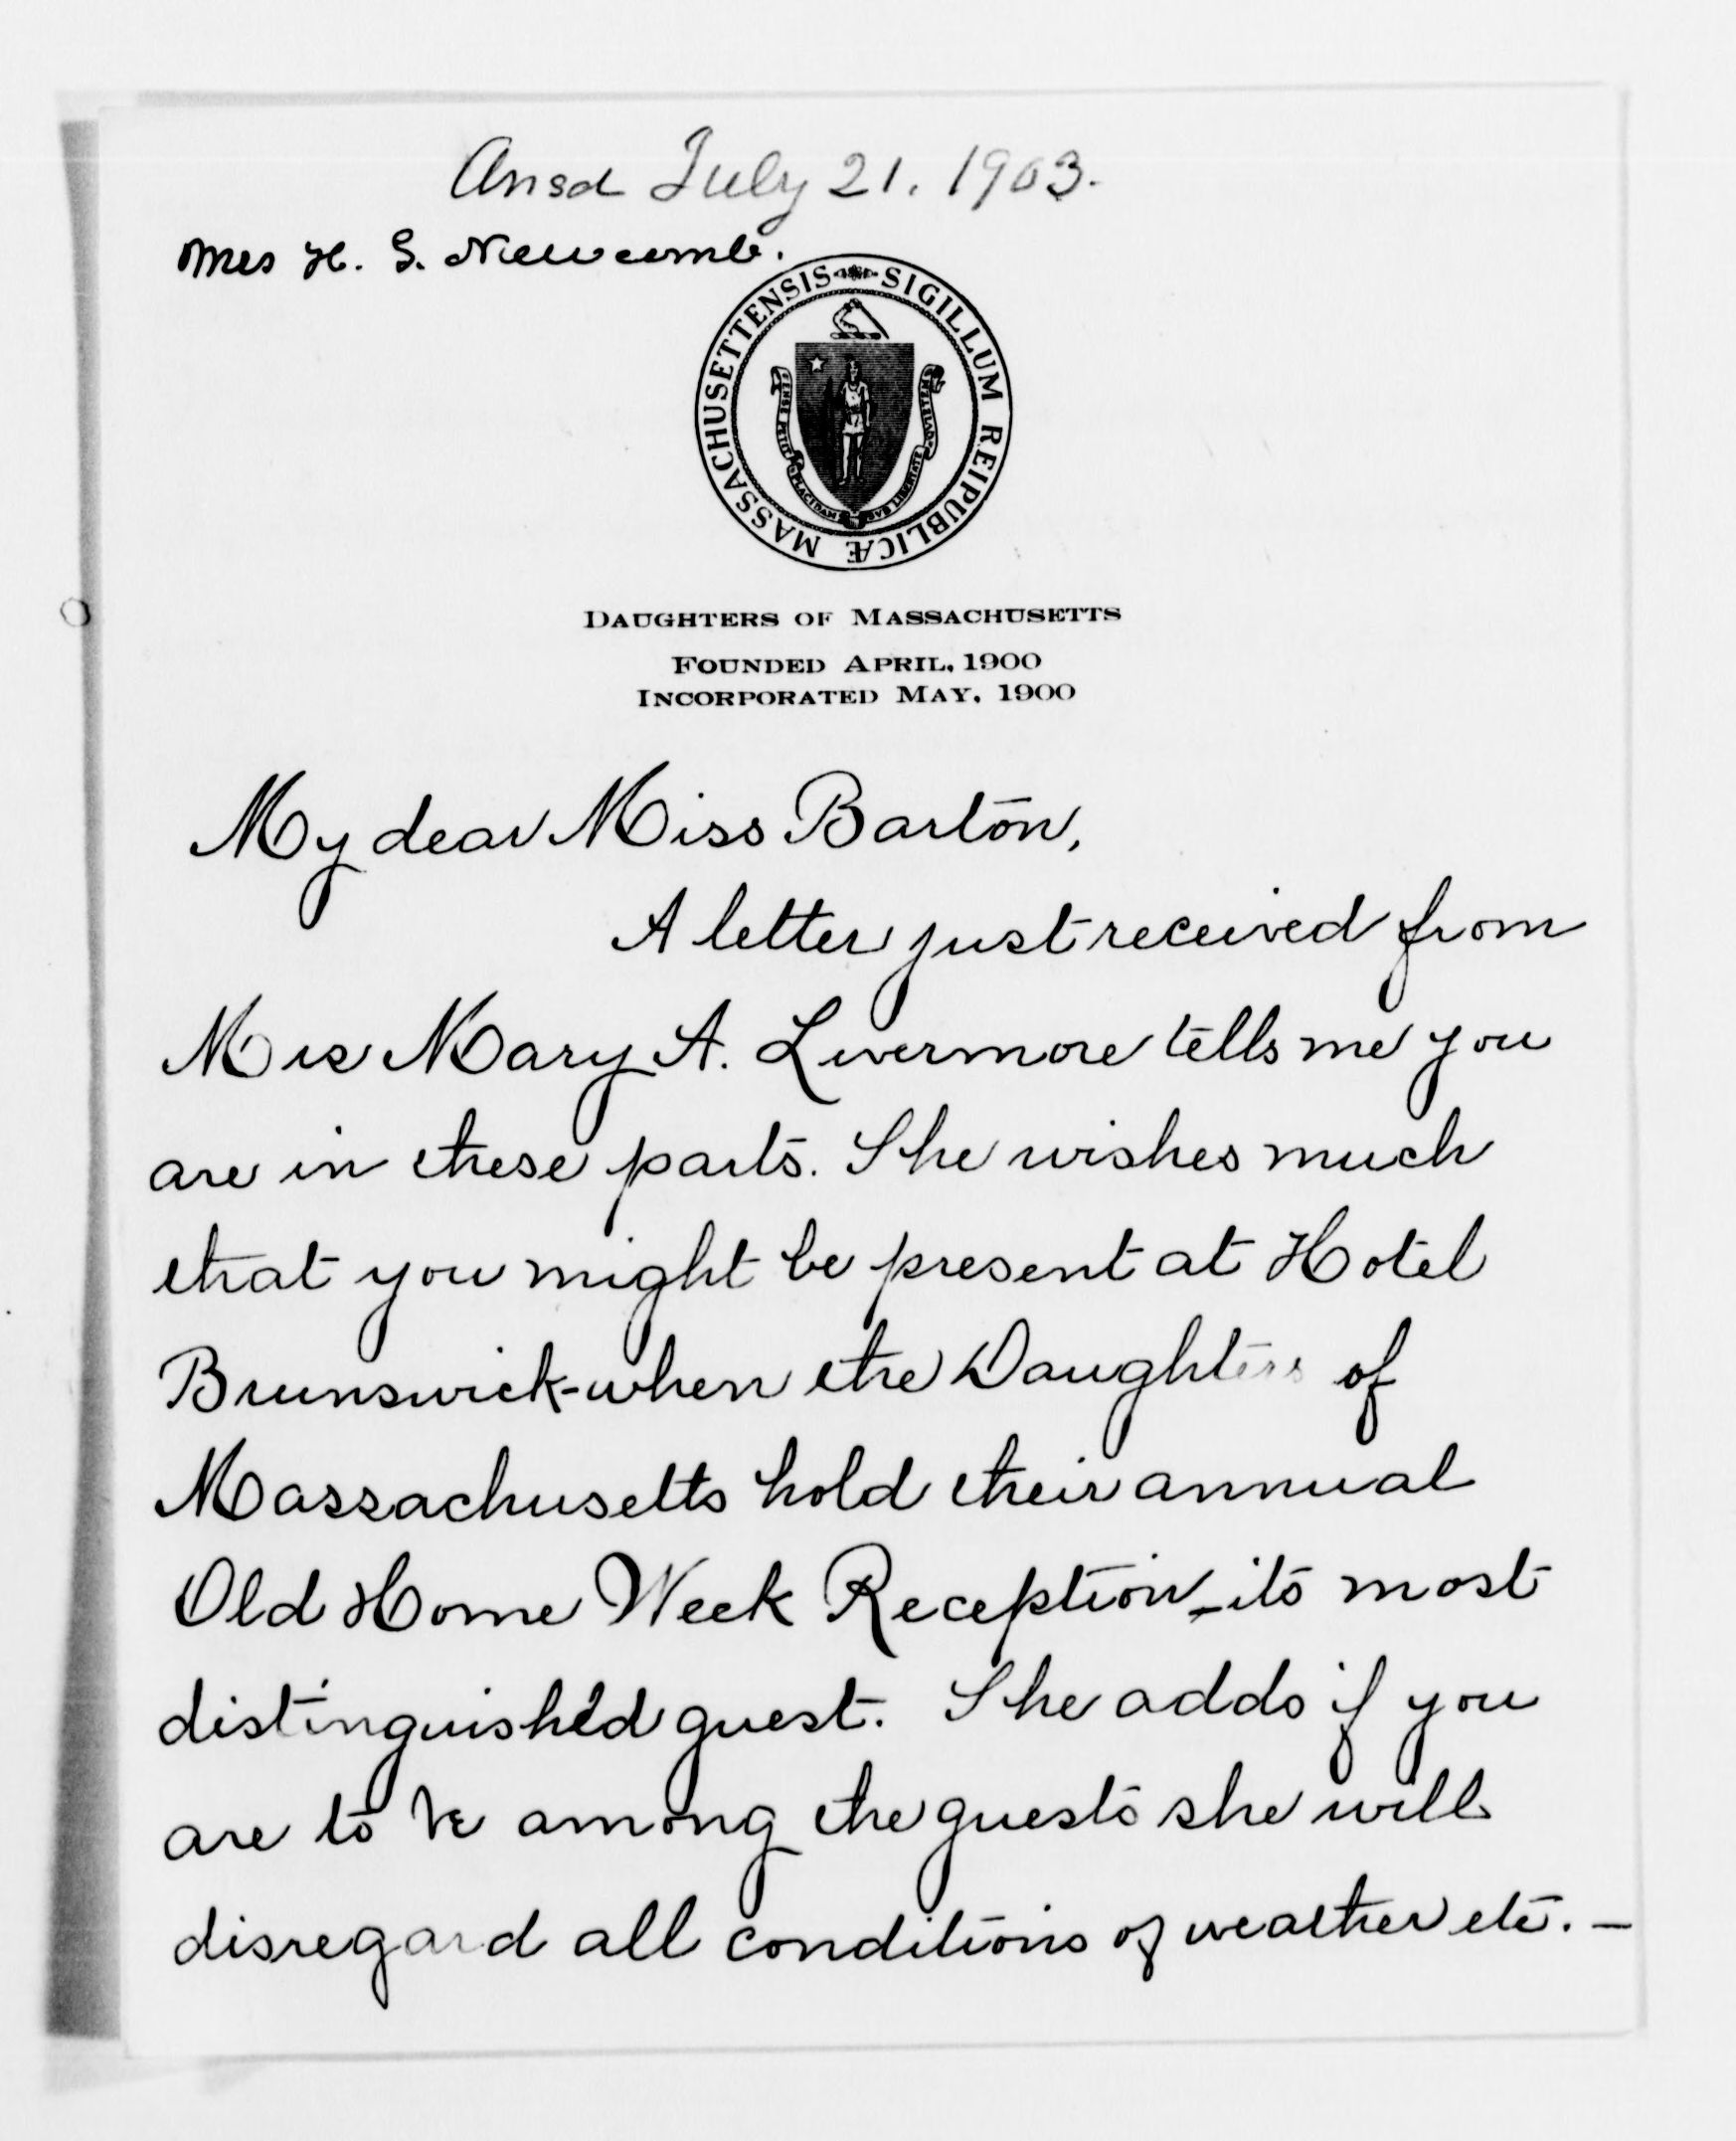 Ansd July 21. 1903.
Mrs H. S. Newcomb.
SIGILLUM REIPUBLICÆ MASSACHUSETTENSIS
ENSE PETIT PLACIDAM SUB LIBERTATE QUIETEM
DAUGHTERS OF MASSACHUSETTS
FOUNDED APRIL, 1900
INCORPORATED MAY, 1900
My dear Miss Barton,
A letter just received from
Mrs Mary A. Livermore tells me you
are in these parts. She wishes much
that you might be present at Hotel
Brunswick-when the Daughters of
Massachusetts hold their annual
Old Home Week Reception - its most
distinguished guest. She adds if you
are to be among the guests she will
disregard all conditions of weather etc. —